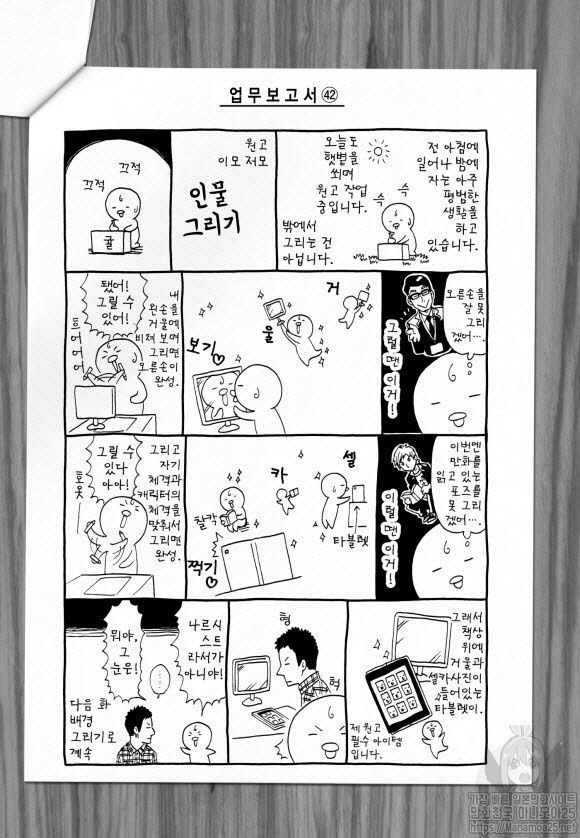 업무보고서㊷
전 아침에
일어나 밤에
자는 아주
평범한
생활을
하고
있습니다.
슥
슥
오늘도
햇볕을
쬐며
원고 작업
중입니다.
밖에서
그리는 건
아닙니다.
원고
이모저모
인물
그리기
끄적
끄적
귤
오른손을
잘 못
그리
겠어….
그럴 땐 이거!
거
울
보기♡
내
왼손을
거울에
비쳐 보며
그리면
오른손이
완성.
됐어!
그릴 수
있어!
이번엔
만화를
읽고 있는
포즈를
못 그리
겠어….
이럴 땐 이거!
셀
카
찍기♡
찰칵
타블렛
그리고
자기
체격과
캐릭터의
체격을
맞춰서
그리면
완성.
그릴 수
있다
아아!
그래서
책상
위에
거울과
셀카 사진이
들어있는
타블렛이.
제 원고
필수 아이템
입니다.
헝
헉
나르시
스트
라서가
아니야!
……
뭐야,
그
눈은!
다음 화
배경
그리기로
계속
가장 빠른 일본만화사이트
만화천국 마나모아25
https://Manamoa25.net